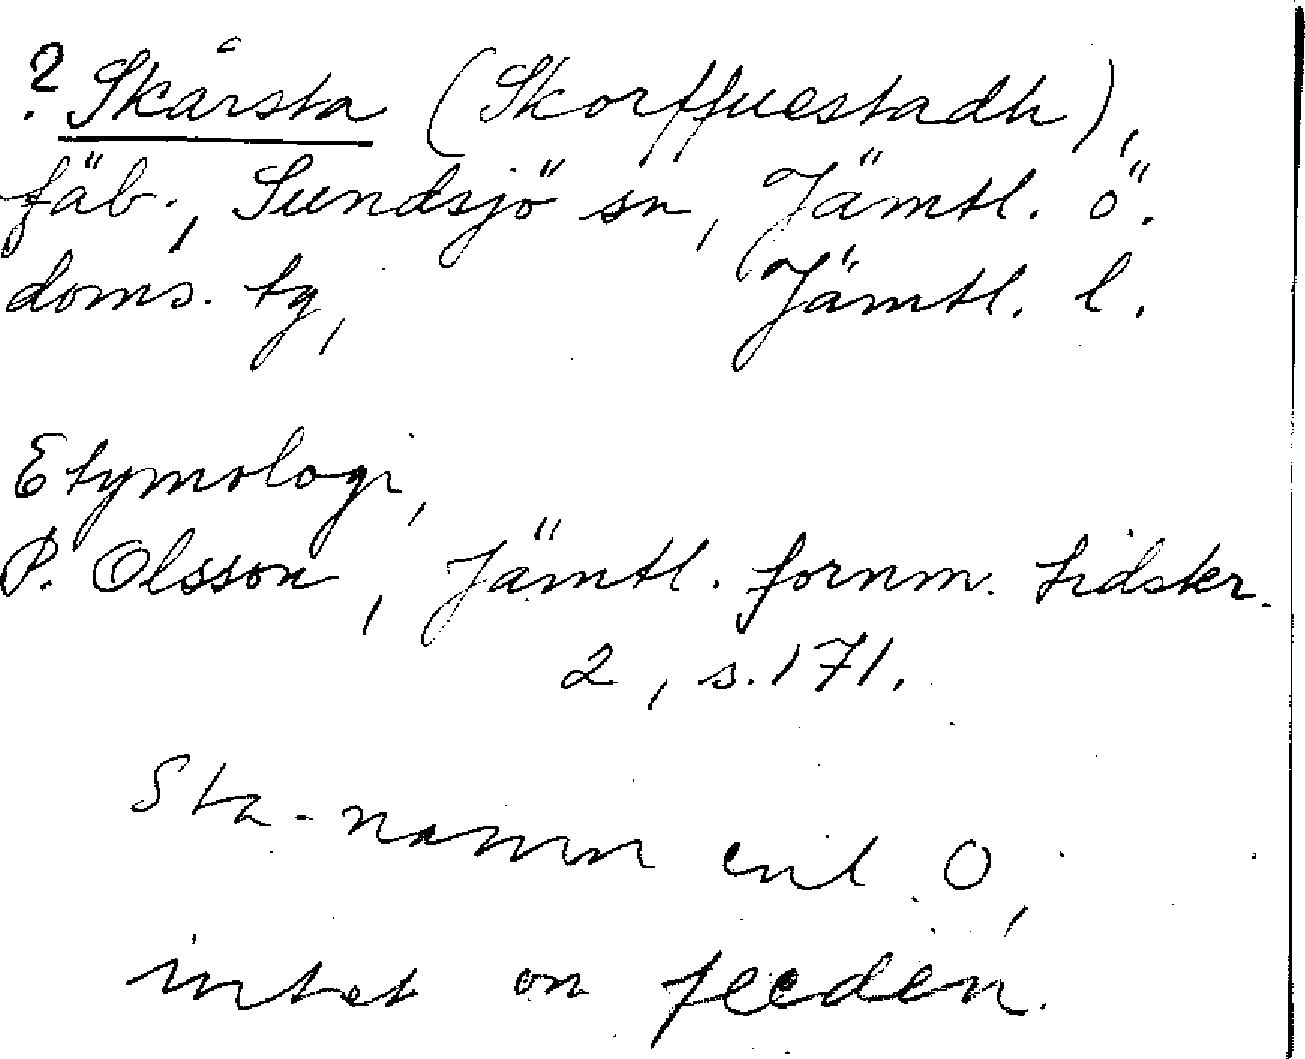 ? Skårsta (Skorffuestadh),
fäb., Sundsjö sn, Jämtl. ö.
doms. tg, Jämtl. l.
Etymologi,
P. Olsson, Jämtl. fornm. tidskr.
2, s. 171.
Sta-namn enl. O,
intet om